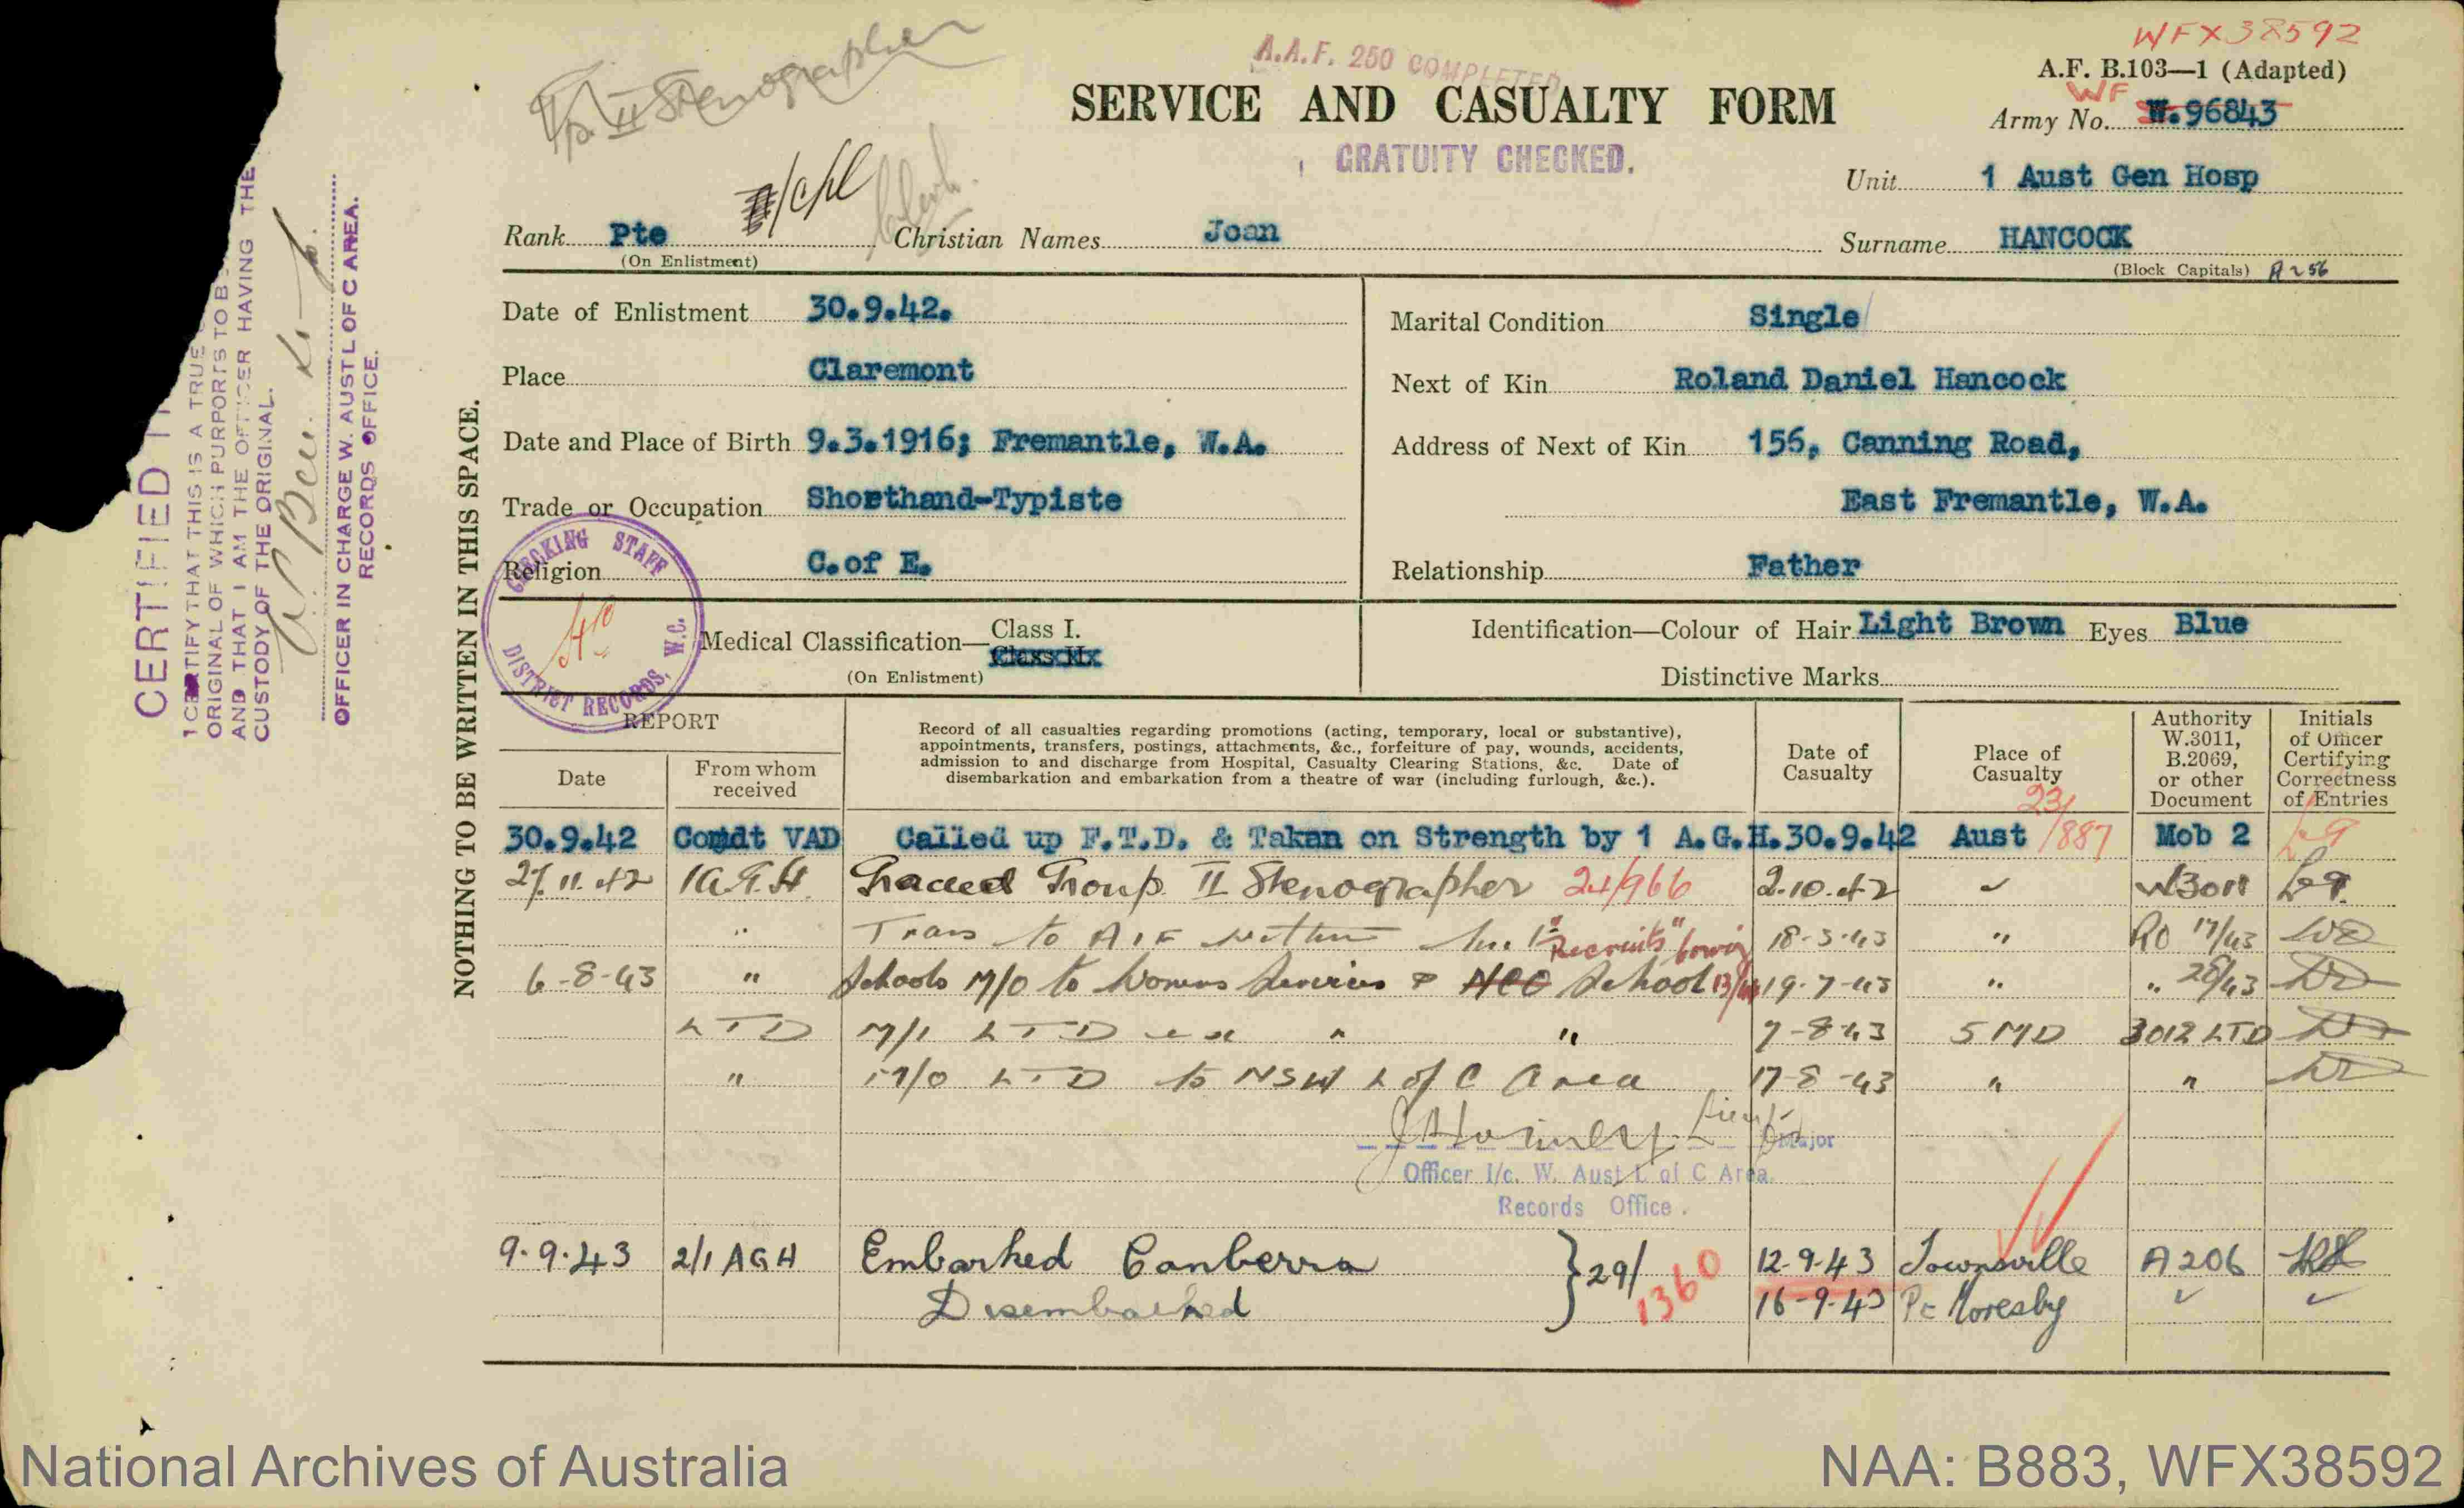 WFX38592
Gp. II Stenographer
A.A.F. 250 COMPLETED
A.F. B.103—1 (Adapted)
SERVICE AND CASUALTY FORM
WF
Army No. W.96843
GRATUITY CHECKED.
Unit 1 Aust Gen Hosp
/Cpl Clerk.
Rank Pte Christian Names Joan Surname HANCOCK
(On Enlistment) (Block Capitals) A256
Date of Enlistment 30.9.42.
Place Claremont
Date and Place of Birth 9.3.1916; Fremantle, W.A.
Trade or Occupation Shorthand-Typiste
Religion C.of E.
Marital Condition Single
Next of Kin Roland Daniel Hancock
Address of Next of Kin 156, Canning Road,
East Fremantle, W.A.
Relationship Father
Medical Classification— Class I.
Class II
(On Enlistment)
Identification—Colour of Hair Light Brown Eyes Blue
Distinctive Marks
CHECKING STAFF
DISTRICT RECORDS, W.C.
NOTHING TO BE WRITTEN IN THIS SPACE.
CERTIFIED
I CERTIFY THAT THIS IS A TRUE
ORIGINAL OF WHICH PURPORTS TO B
AND THAT I AM THE OFFICER HAVING THE
CUSTODY OF THE ORIGINAL.
OFFICER IN CHARGE W. AUST L OF C AREA.
RECORDS OFFICE.
REPORT
Date
From whom
received
Record of all casualties regarding promotions (acting, temporary, local or substantive),
appointments, transfers, postings, attachments, &c., forfeiture of pay, wounds, accidents,
admission to and discharge from Hospital, Casualty Clearing Stations, &c. Date of
disembarkation and embarkation from a theatre of war (including furlough, &c.).
Date of
Casualty
Place of
Casualty
Authority
W.3011,
B.2069,
or other
Document
Initials
of Officer
Certifying
Correctness
of Entries
30.9.42 Comdt VAD Called up F.T.D. & Taken on Strength by 1 A.G.H. 30.9.42 Aust 23/887 Mob 2
27.11.42 1 A.G.H. Graded Group II Stenographer 24/966 2.10.42 W3011
" Trans to AIF within 18-3-43 " RO 17/43
"Recruits"
6-8-43 " Schools M/O to Womens Services NCO School 19-7-43 " " 28/43
LTD M/I LTD ex " " 7-8-43 5 MD 3012 LTD
" M/O LTD to NSW L of C Area 17-8-43 " "
Lieut
Major
Officer I/c. W. Aust L of C Area.
Records Office.
9.9.43 2/1 AGH Embarked Canberra 29/1360 12-9-43 Townsville A206
Disembarked 16-9-43 Pt Moresby
National Archives of Australia
NAA: B883, WFX38592